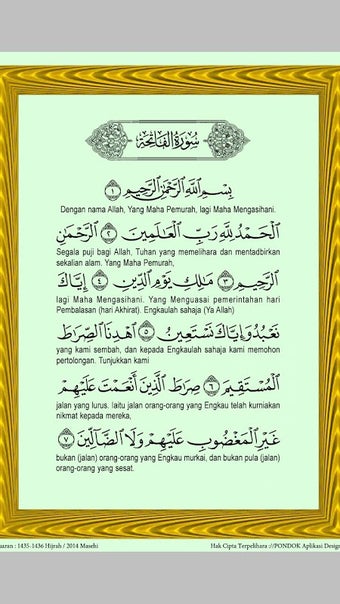 سُورَةُ الْفَاتِحَةِ
بِسْمِ اللَّهِ الرَّحْمَٰنِ الرَّحِيمِ ۝١
Dengan nama Allah, Yang Maha Pemurah, lagi Maha Mengasihani.
الْحَمْدُ لِلَّهِ رَبِّ الْعَالَمِينَ ۝٢ الرَّحْمَٰنِ
Segala puji bagi Allah, Tuhan yang memelihara dan mentadbirkan
sekalian alam. Yang Maha Pemurah,
الرَّحِيمِ ۝٣ مَالِكِ يَوْمِ الدِّينِ ۝٤ إِيَّاكَ
lagi Maha Mengasihani. Yang Menguasai pemerintahan hari
Pembalasan (hari Akhirat). Engkaulah sahaja (Ya Allah)
نَعْبُدُ وَإِيَّاكَ نَسْتَعِينُ ۝٥ اهْدِنَا الصِّرَاطَ
yang kami sembah, dan kepada Engkaulah sahaja kami memohon
pertolongan. Tunjukkan kami
الْمُسْتَقِيمَ ۝٦ صِرَاطَ الَّذِينَ أَنْعَمْتَ عَلَيْهِمْ
jalan yang lurus. Iaitu jalan orang-orang yang Engkau telah kurniakan
nikmat kepada mereka,
غَيْرِ الْمَغْضُوبِ عَلَيْهِمْ وَلَا الضَّالِّينَ ۝٧
bukan (jalan) orang-orang yang Engkau murkai, dan bukan pula (jalan)
orang-orang yang sesat.
: 1435-1436 Hijrah / 2014 Masehi
Hak Cipta Terpelihara ://PONDOK Aplikasi Design